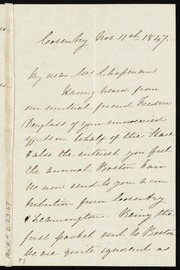 Coventry Nov 11th 1847.
My dear Mrs Chapman
Having heard from
our mutual friend Frederic
Douglass of your unwearied
efforts on behalf of the Slave
& also the interest you feel
the annual Boston
We now send to you a con
tribution from Coventry
& Leamington. Being the
first packet sent to Boston
we are quite ignorant as